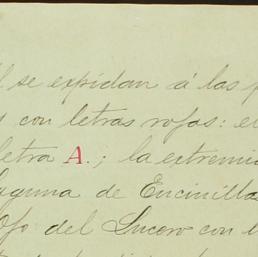 se expidan á las
con letras rojas: e
letra A.; la extremi
laguna de Encinilla
Ojo del Lucero con l